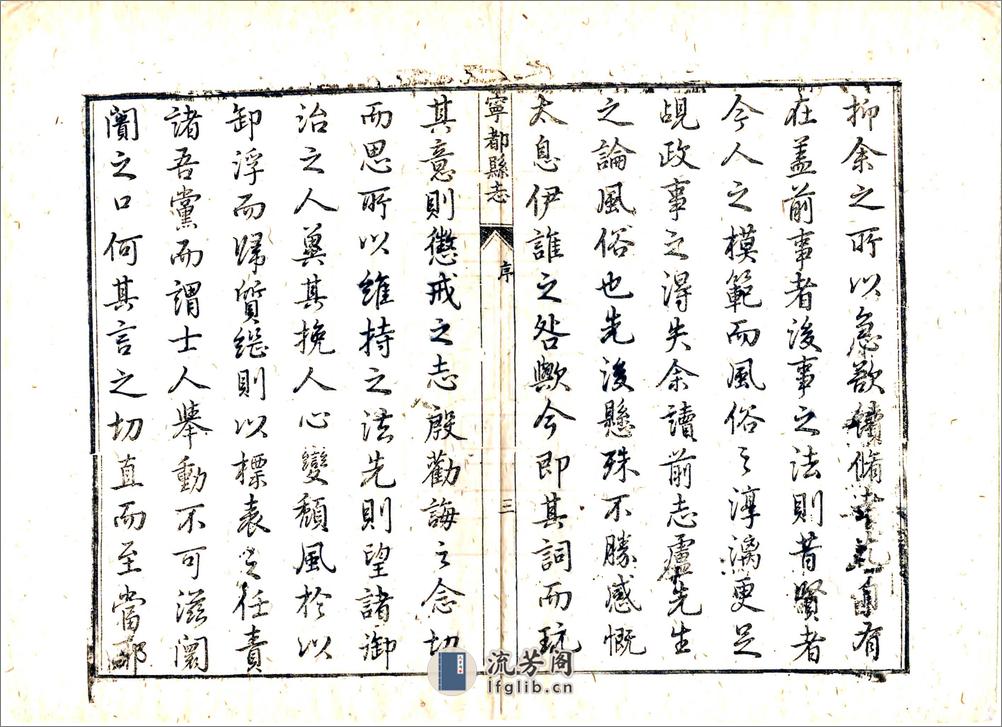 抑余之所以急欲續脩者自有
在盖前事者後事之法則昔賢者
今人之模範而風俗之淳漓更足
覘政事之得失余讀前志盧先生
之論風俗也先後懸殊不勝感慨
太息伊誰之咎歟今即其詞而玩
寧都縣志
序
三
其意則懲戒之志殷勸誨之念切
而思所以維持之法先則望諸御
治之人奠其挽人心變頹風於以
卸浮而歸質繼則以標表之任責
諸吾黨而謂士人舉動不可滋闤
闠之口何其言之切直而至當
流芳阁
lfglib.cn